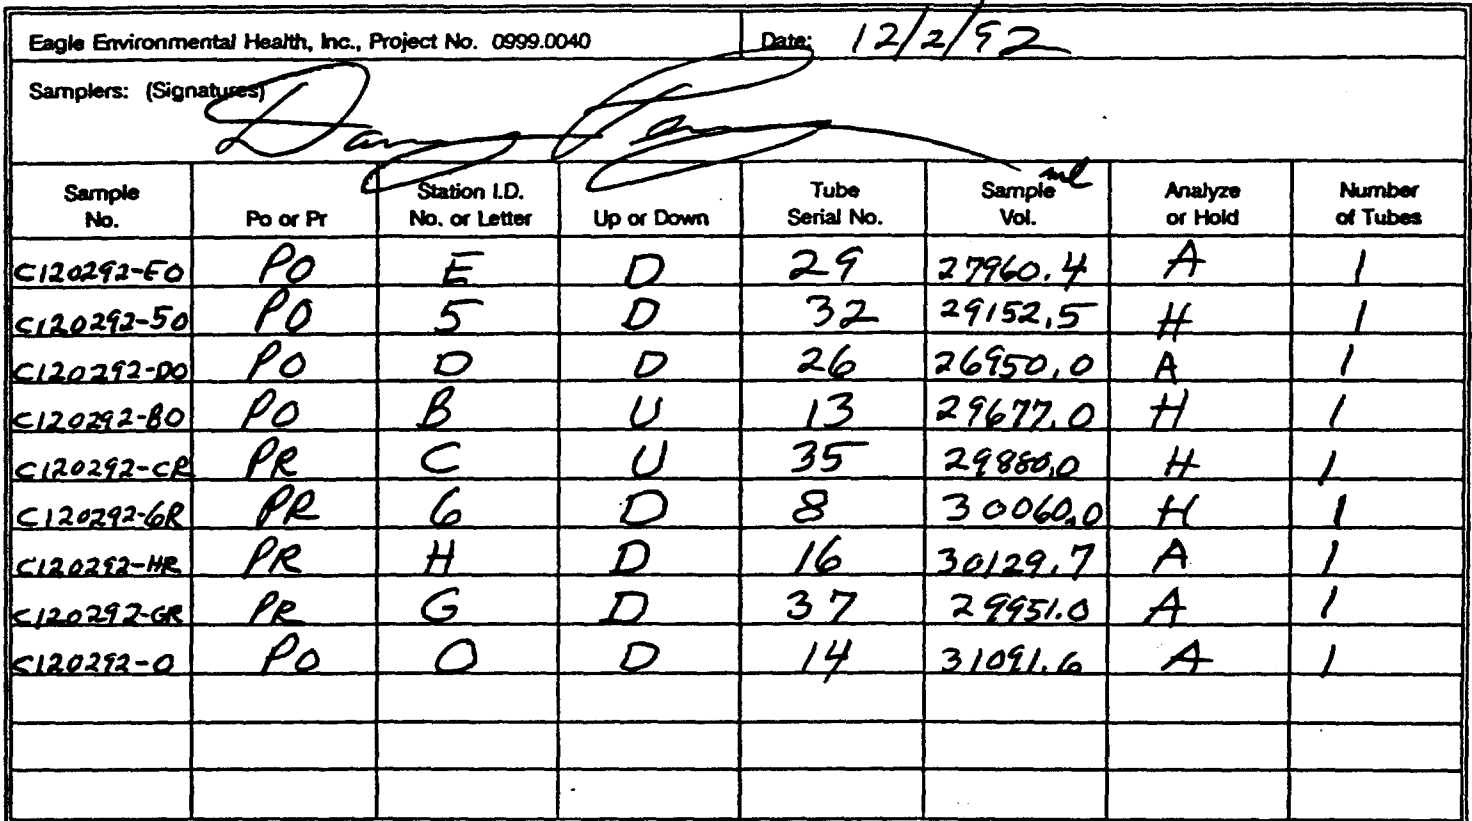 Eagle Environmental Health, Inc., Project No. 0999.0040 Date: 12/2/92
Samplers: (Signatures)
Sample No. Po or Pr Station I.D. No. or Letter Up or Down Tube Serial No. Sample Vol. ml Analyze or Hold Number of Tubes
C120292-EO PO E D 29 27960.4 A 1
C120292-5O PO 5 D 32 29152.5 H 1
C120292-DO PO D D 26 26950.0 A 1
C120292-BO PO B U 13 29677.0 H 1
C120292-CR PR C U 35 29880.0 H 1
C120292-6R PR 6 D 8 30060.0 H 1
C120292-HR PR H D 16 30129.7 A 1
C120292-GR PR G D 37 29951.0 A 1
C120292-O PO O D 14 31091.6 A 1